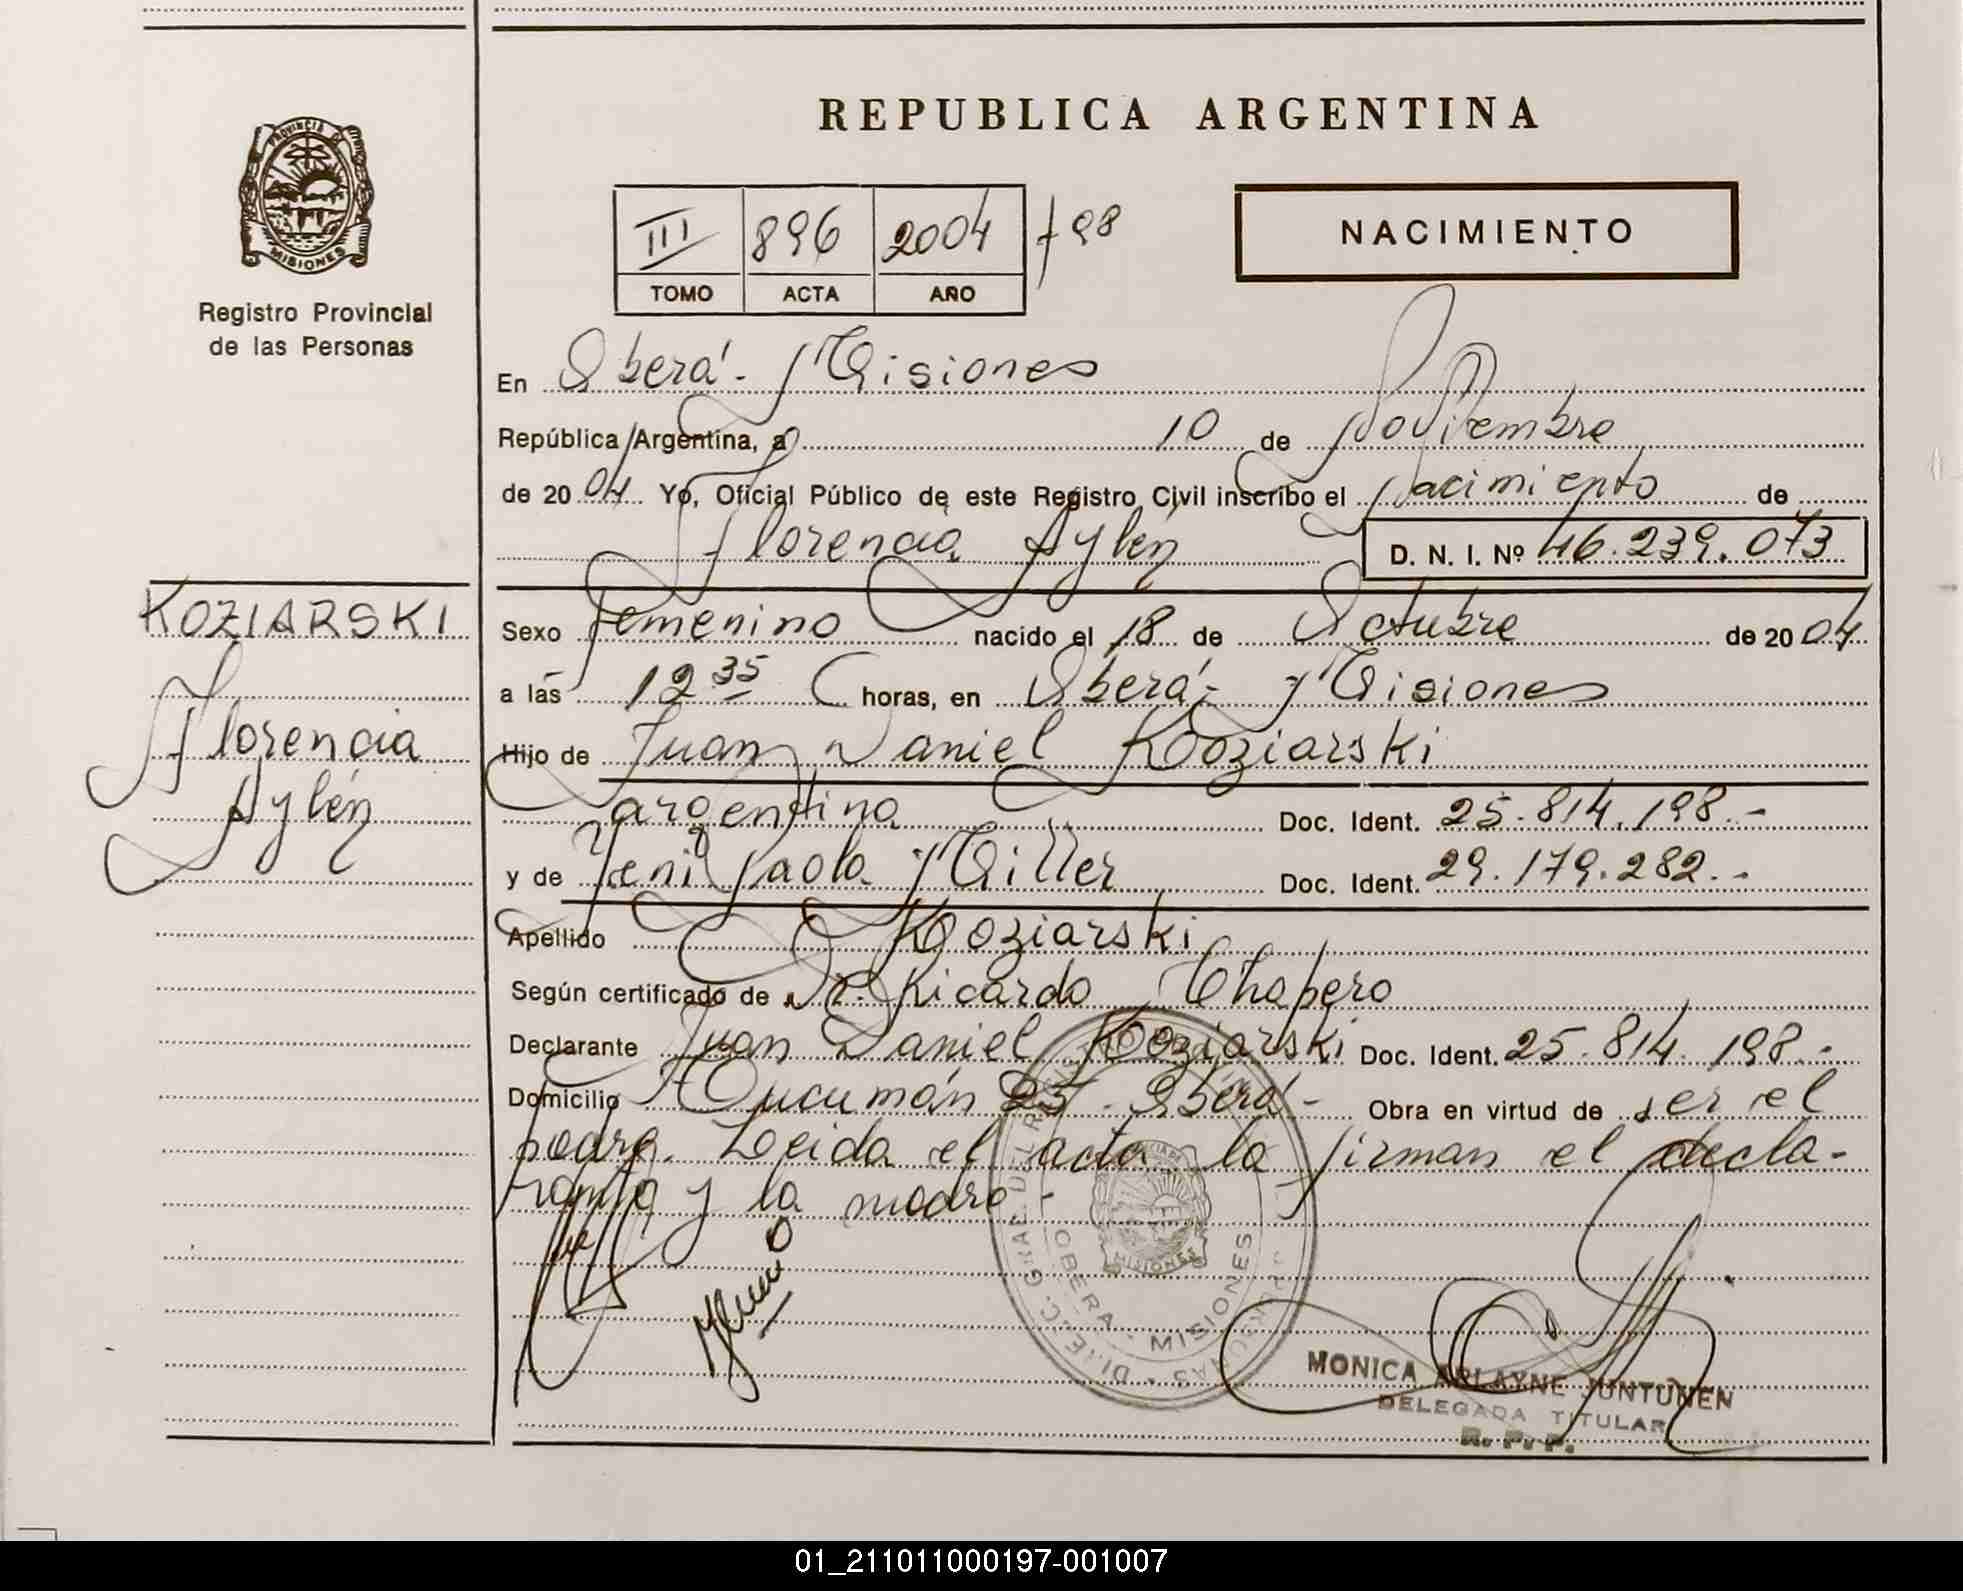 REPUBLICA ARGENTINA
PROVINCIA DE
MISIONES
Registro Provincial
de las Personas
III 896 2004 f 98
TOMO ACTA AÑO
NACIMIENTO
En Oberá - Misiones
República Argentina, a 10 de Noviembre
de 2004 Yo, Oficial Público de este Registro Civil inscribo el Nacimiento de
Florencia Aylén D. N. I. Nº 46.239.073
KOZIARSKI
Florencia
Aylén
Sexo femenino nacido el 18 de Octubre de 2004
a las 12 35 horas, en Oberá - Misiones
Hijo de Juan Daniel Koziarski
argentino Doc. Ident. 25.814.198.-
y de Yeni Paola Miller Doc. Ident. 29.179.282.-
Apellido Koziarski
Según certificado de Ricardo Chapero
Declarante Juan Daniel Koziarski Doc. Ident. 25.814.198.-
Domicilio Tucumán 25 - Oberá - Obra en virtud de ser el
padre. Leida el acta la firman el decla-
rante y la madre -
OBERA - MISIONES
MISIONES
MONICA ARLAYNE JUNTUNEN
DELEGADA TITULAR
R. P. P.
01_211011000197-001007